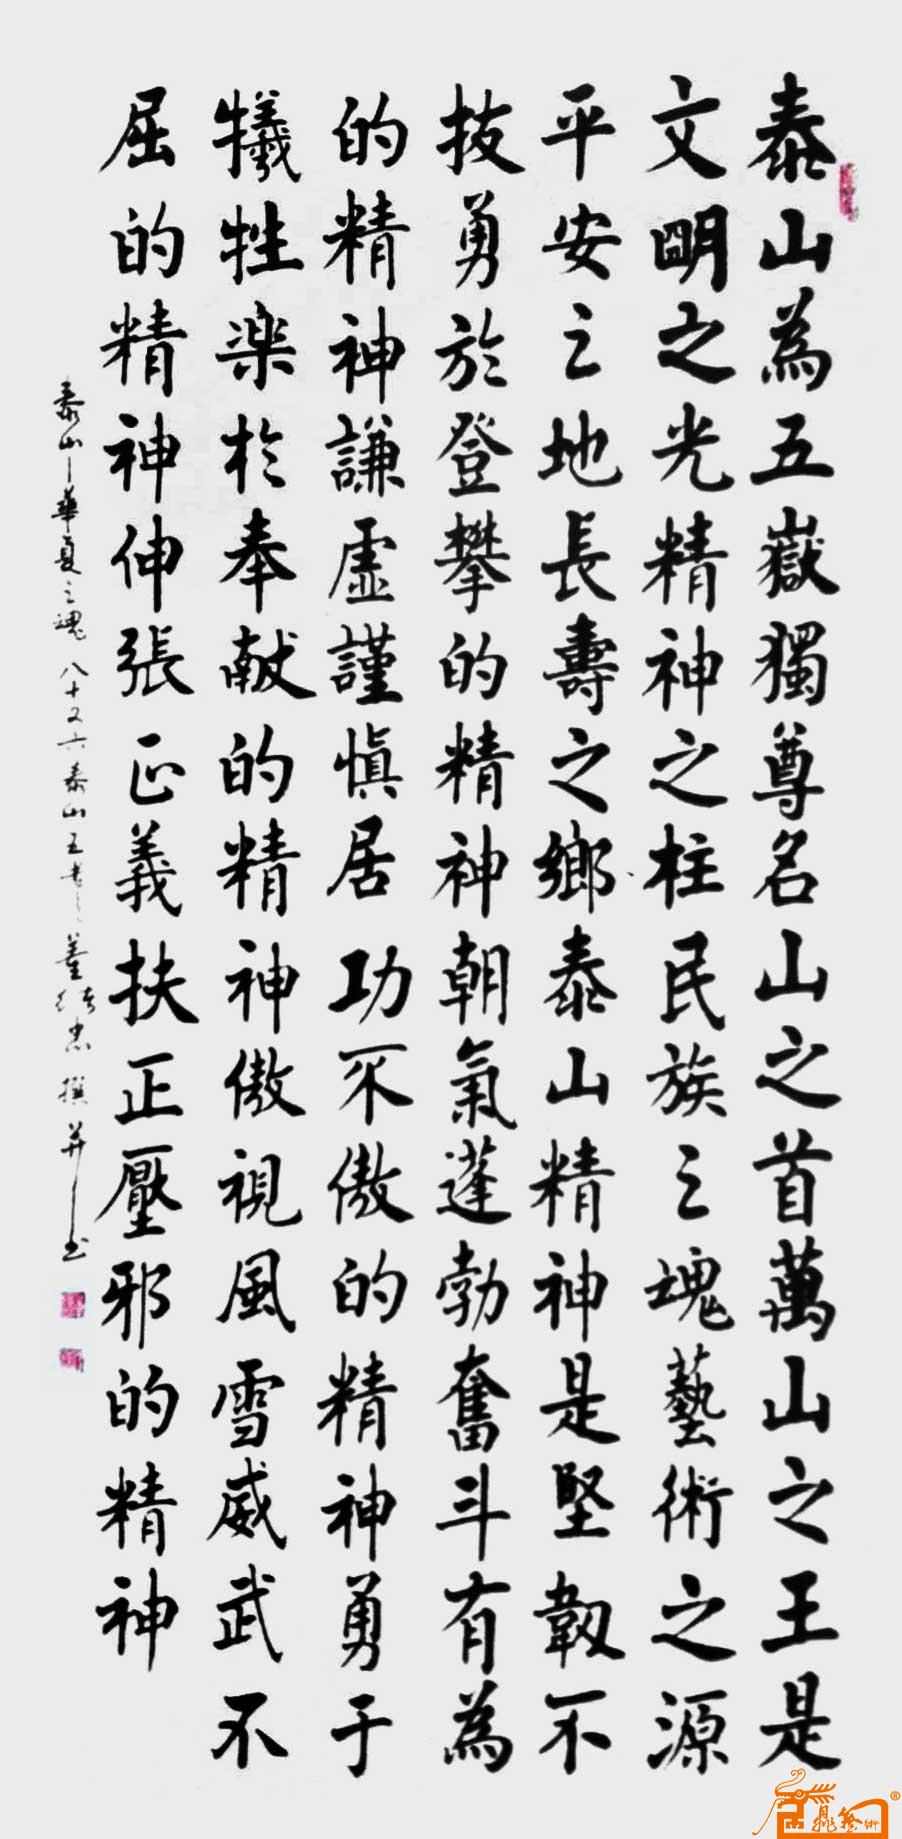 泰山為五嶽獨尊名山之首萬山之王是
文明之光精神之柱民族之魂藝術之源
平安之地長壽之鄉泰山精神是堅韌不
技勇於登攀的精神朝氣蓬勃奮斗有為
的精神謙虛謹慎居功不傲的精神勇于
犧牲楽於奉献的精神傲視風雪威武不
屈的精神伸張正義扶正壓邪的精神
泰山華夏之魂 八十又六泰山五老 董 忠 撰并书